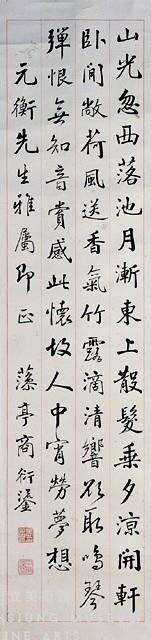 山光忽西落池月漸東上散髮乘夕涼開軒
卧閒敞荷風送香氣竹露滴清響欲取鳴琴
彈恨無知音賞感此懷故人中宵勞夢想
元衡先生雅屬即正 藻亭商衍鎏